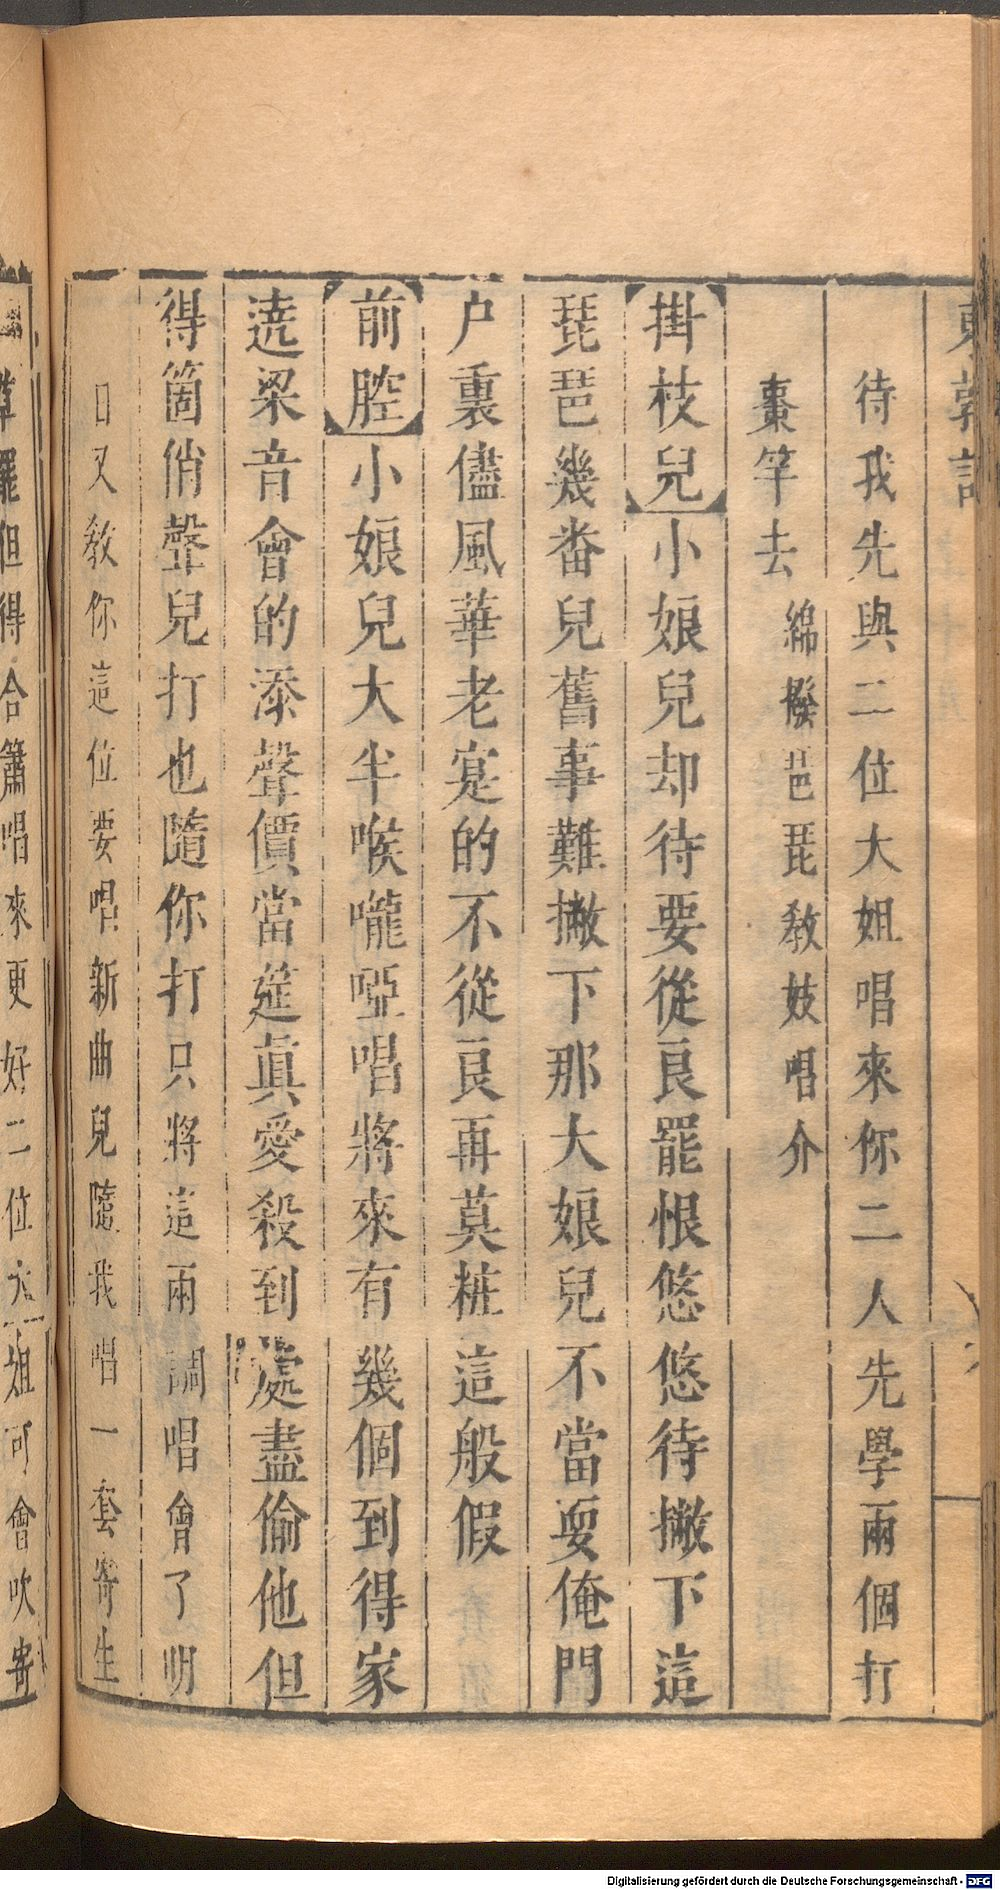 東郭記
待我先與二位大姐唱來你二人先學兩個打
棗竿去 綿撥琵琶教妓唱介
掛枝兒小娘兒却待要從良罷恨悠悠待撇下這
琵琶幾畨兒舊事難撇下那大娘兒不當耍俺門
户裏儘風華老寔的不從良再莫粧這般假
前腔小娘兒大半喉嚨啞唱將來有幾個到得家
遶梁音會的添聲價當筵眞愛殺到處盡偷他但
得箇俏聲兒打也隨你打只將這兩調唱會了明
日又敎你這位要唱新曲兒隨我唱一套寄生
草罷但得合簫唱來更好二位大姐可會吹寄
Digitalisierung gefördert durch die Deutsche Forschungsgemeinschaft - DFG